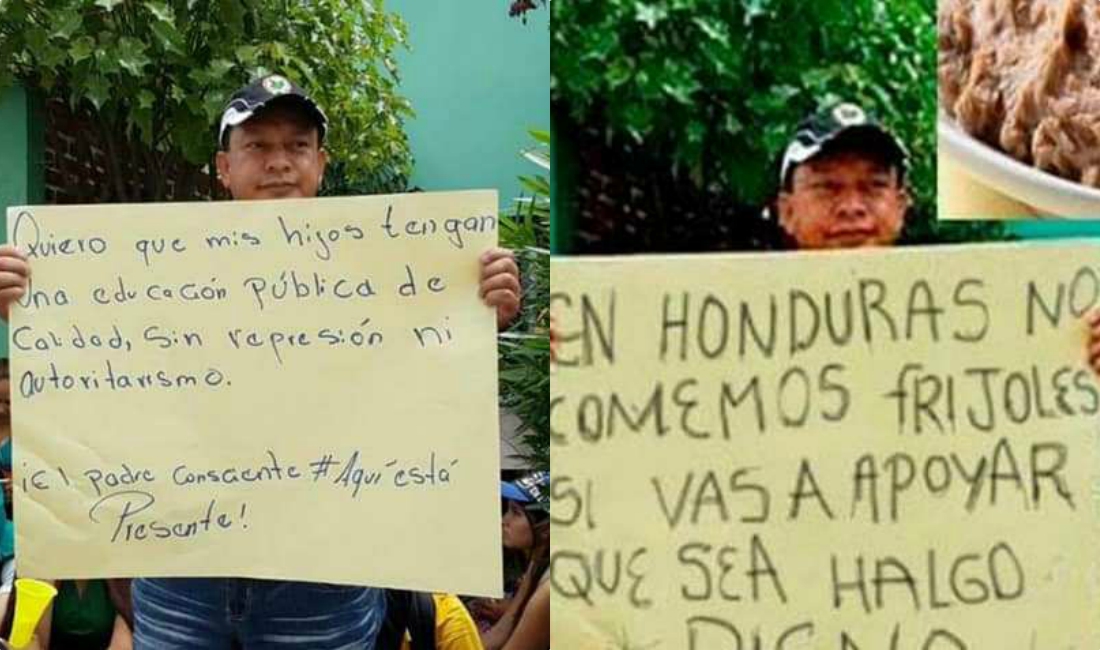 Quiero que mis hijos tengan
Una educación pública de
Calidad, sin represión ni
autoritarismo.
¡El padre consciente #Aquí está
Presente!
EN HONDURAS NO
COMEMOS fRIJOLES
SI VAS A APOYAR
QUE SEA HALGO
DIGNO